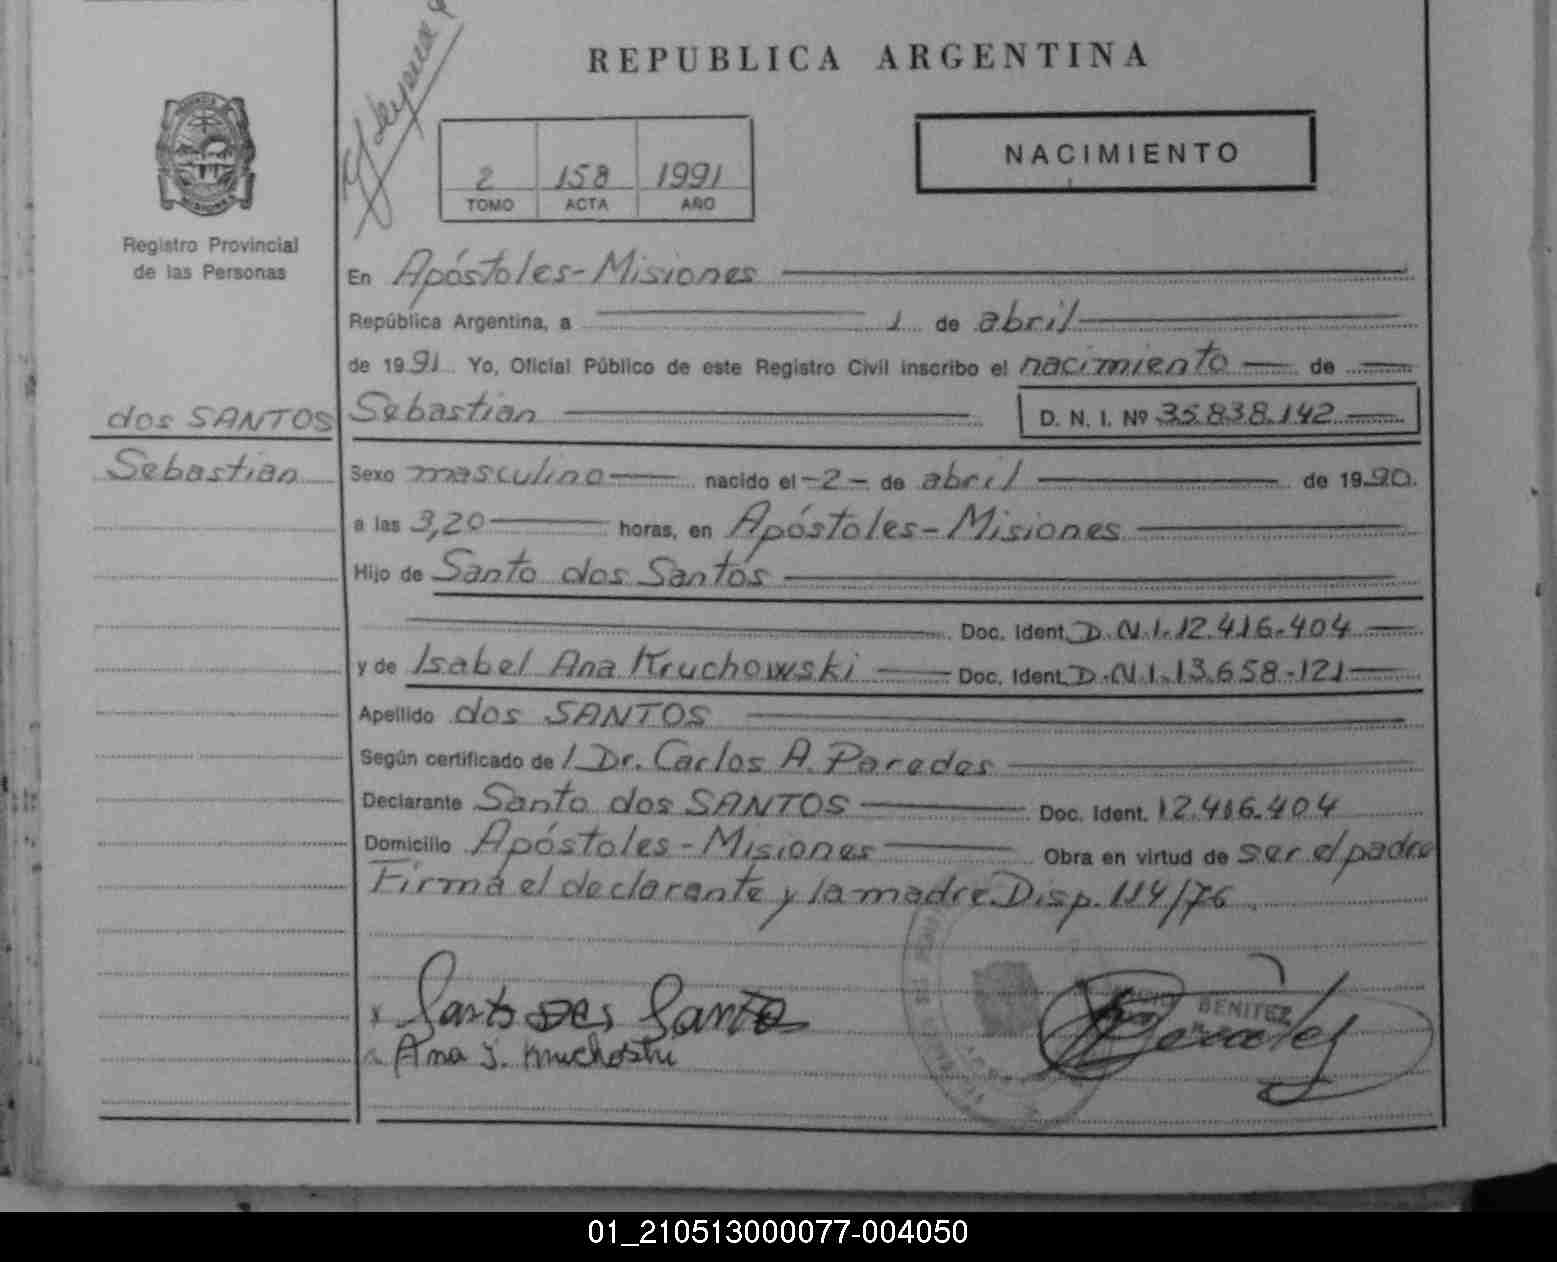 REPUBLICA ARGENTINA
NACIMIENTO
2 158 1991
TOMO ACTA AÑO
Registro Provincial
de las Personas
En Apóstoles-Misiones
República Argentina, a 1 de abril
de 1991 Yo, Oficial Público de este Registro Civil inscribo el nacimiento de
dos SANTOS Sebastian D. N. I. Nº 35.838.142
Sebastian Sexo masculino nacido el -2- de abril de 1990.
a las 3,20 horas, en Apóstoles-Misiones
Hijo de Santo dos Santos
Doc. Ident. D.N.I.12.416.404
y de Isabel Ana Kruchowski Doc. Ident. D.N.I.13.658.121
Apellido dos SANTOS
Según certificado de / Dr. Carlos A. Paredes
Declarante Santo dos SANTOS Doc. Ident. 12.416.404
Domicilio Apóstoles-Misiones Obra en virtud de ser el padre
Firma el declarante y la madre. Disp. 114/76
Santo Dos Santo
BENITEZ
Ana I.
01_210513000077-004050